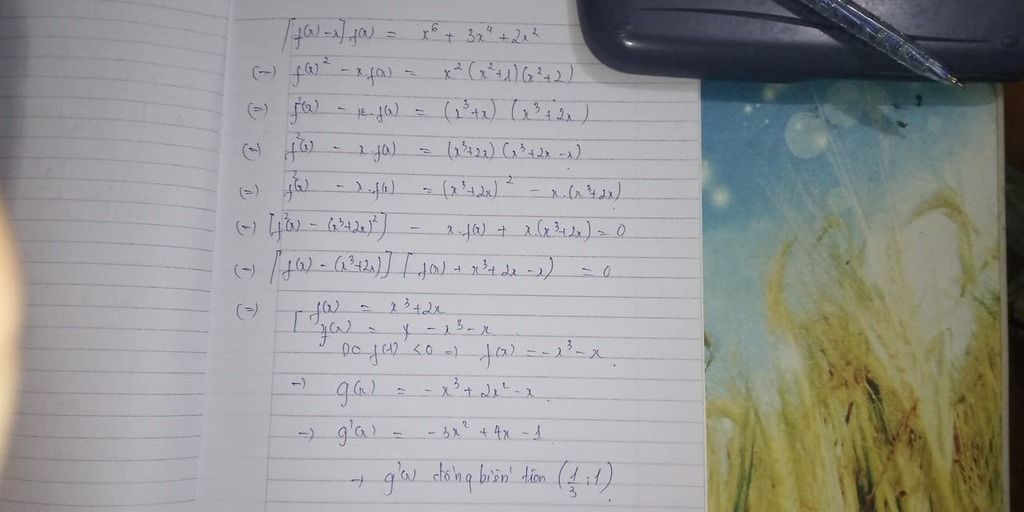 [f(x) - x] f(x) = x⁶ + 3x⁴ + 2x²
(=) f(x)² - x.f(x) = x² (x²+1) (x²+2)
(=) f²(x) - x.f(x) = (x³+x) (x³+2x)
(=) f²(x) - x.f(x) = (x³+2x) (x³+2x - x)
(=) f²(x) - x.f(x) = (x³+2x)² - x.(x³+2x)
(=) [f²(x) - (x³+2x)²] - x.f(x) + x.(x³+2x) = 0
(=) [f(x) - (x³+2x)] [f(x) + x³+2x - x) = 0
(=) [ f(x) = x³+2x
f(x) = - x³ - x
Do f(1) < 0 => f(x) = -x³ - x.
→ g(x) = - x³ + 2x² - x.
→ g'(x) = - 3x² + 4x - 1
→ g'(x) đồng biến trên (1/3 ; 1)